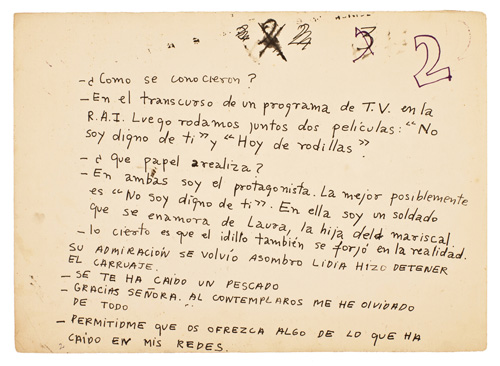 2
- ¿Como se conocieron?
- En el transcurso de un programa de T.V. en la
R.A.I. Luego rodamos juntos dos peliculas: "No
soy digno de ti" y "Hoy de rodillas".
- ¿que papel arealiza?
- En ambas soy el protagonista. La mejor posiblemente
es "No soy digno de ti". En ella soy un soldado
que se enamora de Laura, la hija deld mariscal
- lo cierto es que el idillo también se forjó en la realidad.
SU ADMIRACIÓN SE VOLVIO ASOMBRO LIDIA HIZO DETENER
EL CARRUAJE.
- SE TE HA CAIDO UN PESCADO
- GRACIAS SEÑORA. AL CONTEMPLAROS ME HE OLVIDADO
DE TODO
- PERMITIDME QUE OS OFREZCA ALGO DE LO QUE HA
CAIDO EN MIS REDES.